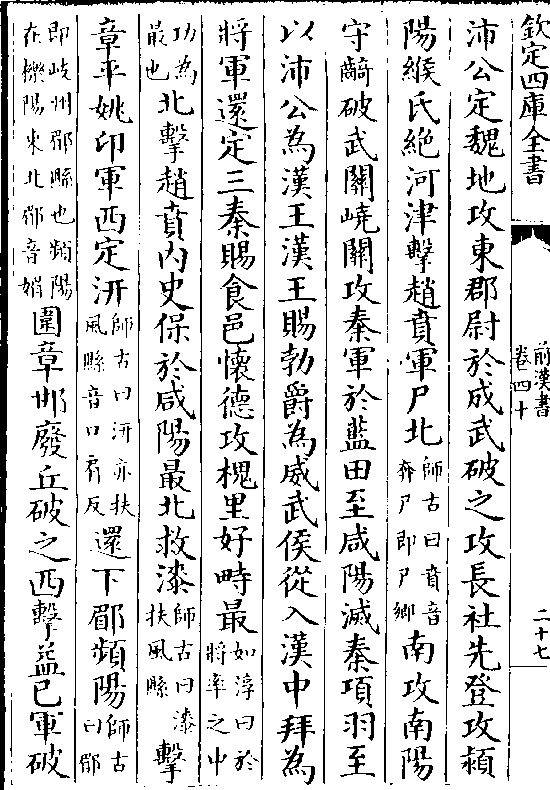 欽定四庫全書
前漢書
卷四十
二十七
沛公定魏地攻東郡尉於成武破之攻長社先登攻潁
陽緱氏絶河津擊趙賁軍尸北師古曰賁音奔尸即尸鄉南攻南陽
守齮破武關嶢關攻秦軍於藍田至咸陽滅秦項羽至
以沛公為漢王漢王賜勃爵為威武侯從入漢中拜為
將軍還定三秦賜食邑懷德攻槐里好畤最如淳曰於將率之中
功為最也北擊趙賁内史保於咸陽最北救漆師古曰漆扶風縣擊
章平姚卬軍西定汧師古曰汧亦扶風縣音口肩反還下郿頻陽師古曰郿
即岐州郿縣也頻陽在櫟陽東北郿音媚圍章邯廢丘破之西擊益已軍破